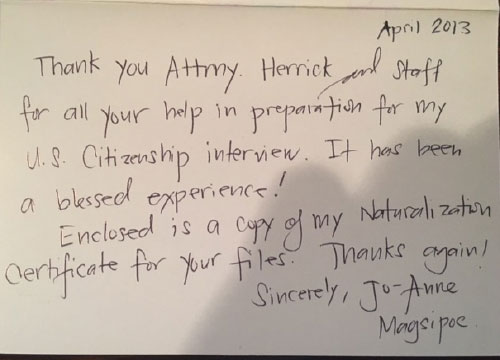 April 2013
Thank you Attrny. Herrick and Staff
for all your help in preparation for my
U.S. Citizenship interview. It has been
a blessed experience!
Enclosed is a copy of my Naturalization
Certificate for your files. Thanks again!
Sincerely, Jo-Anne
Magsipoc